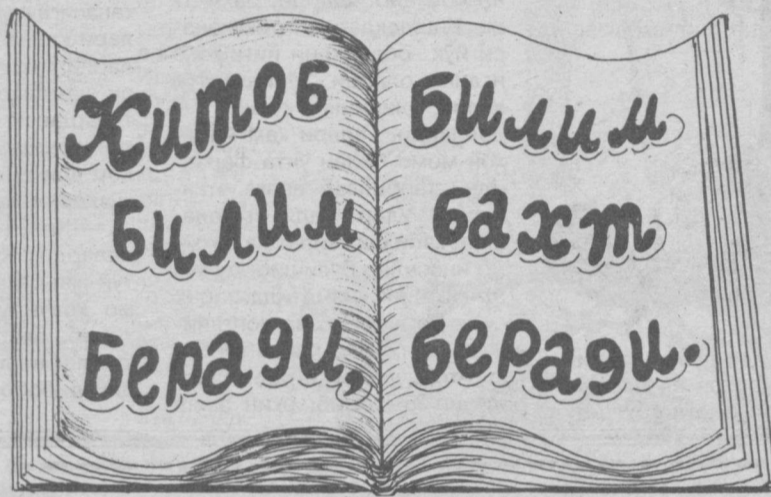 Китоб
билим
беради,
билим
бахт
беради.